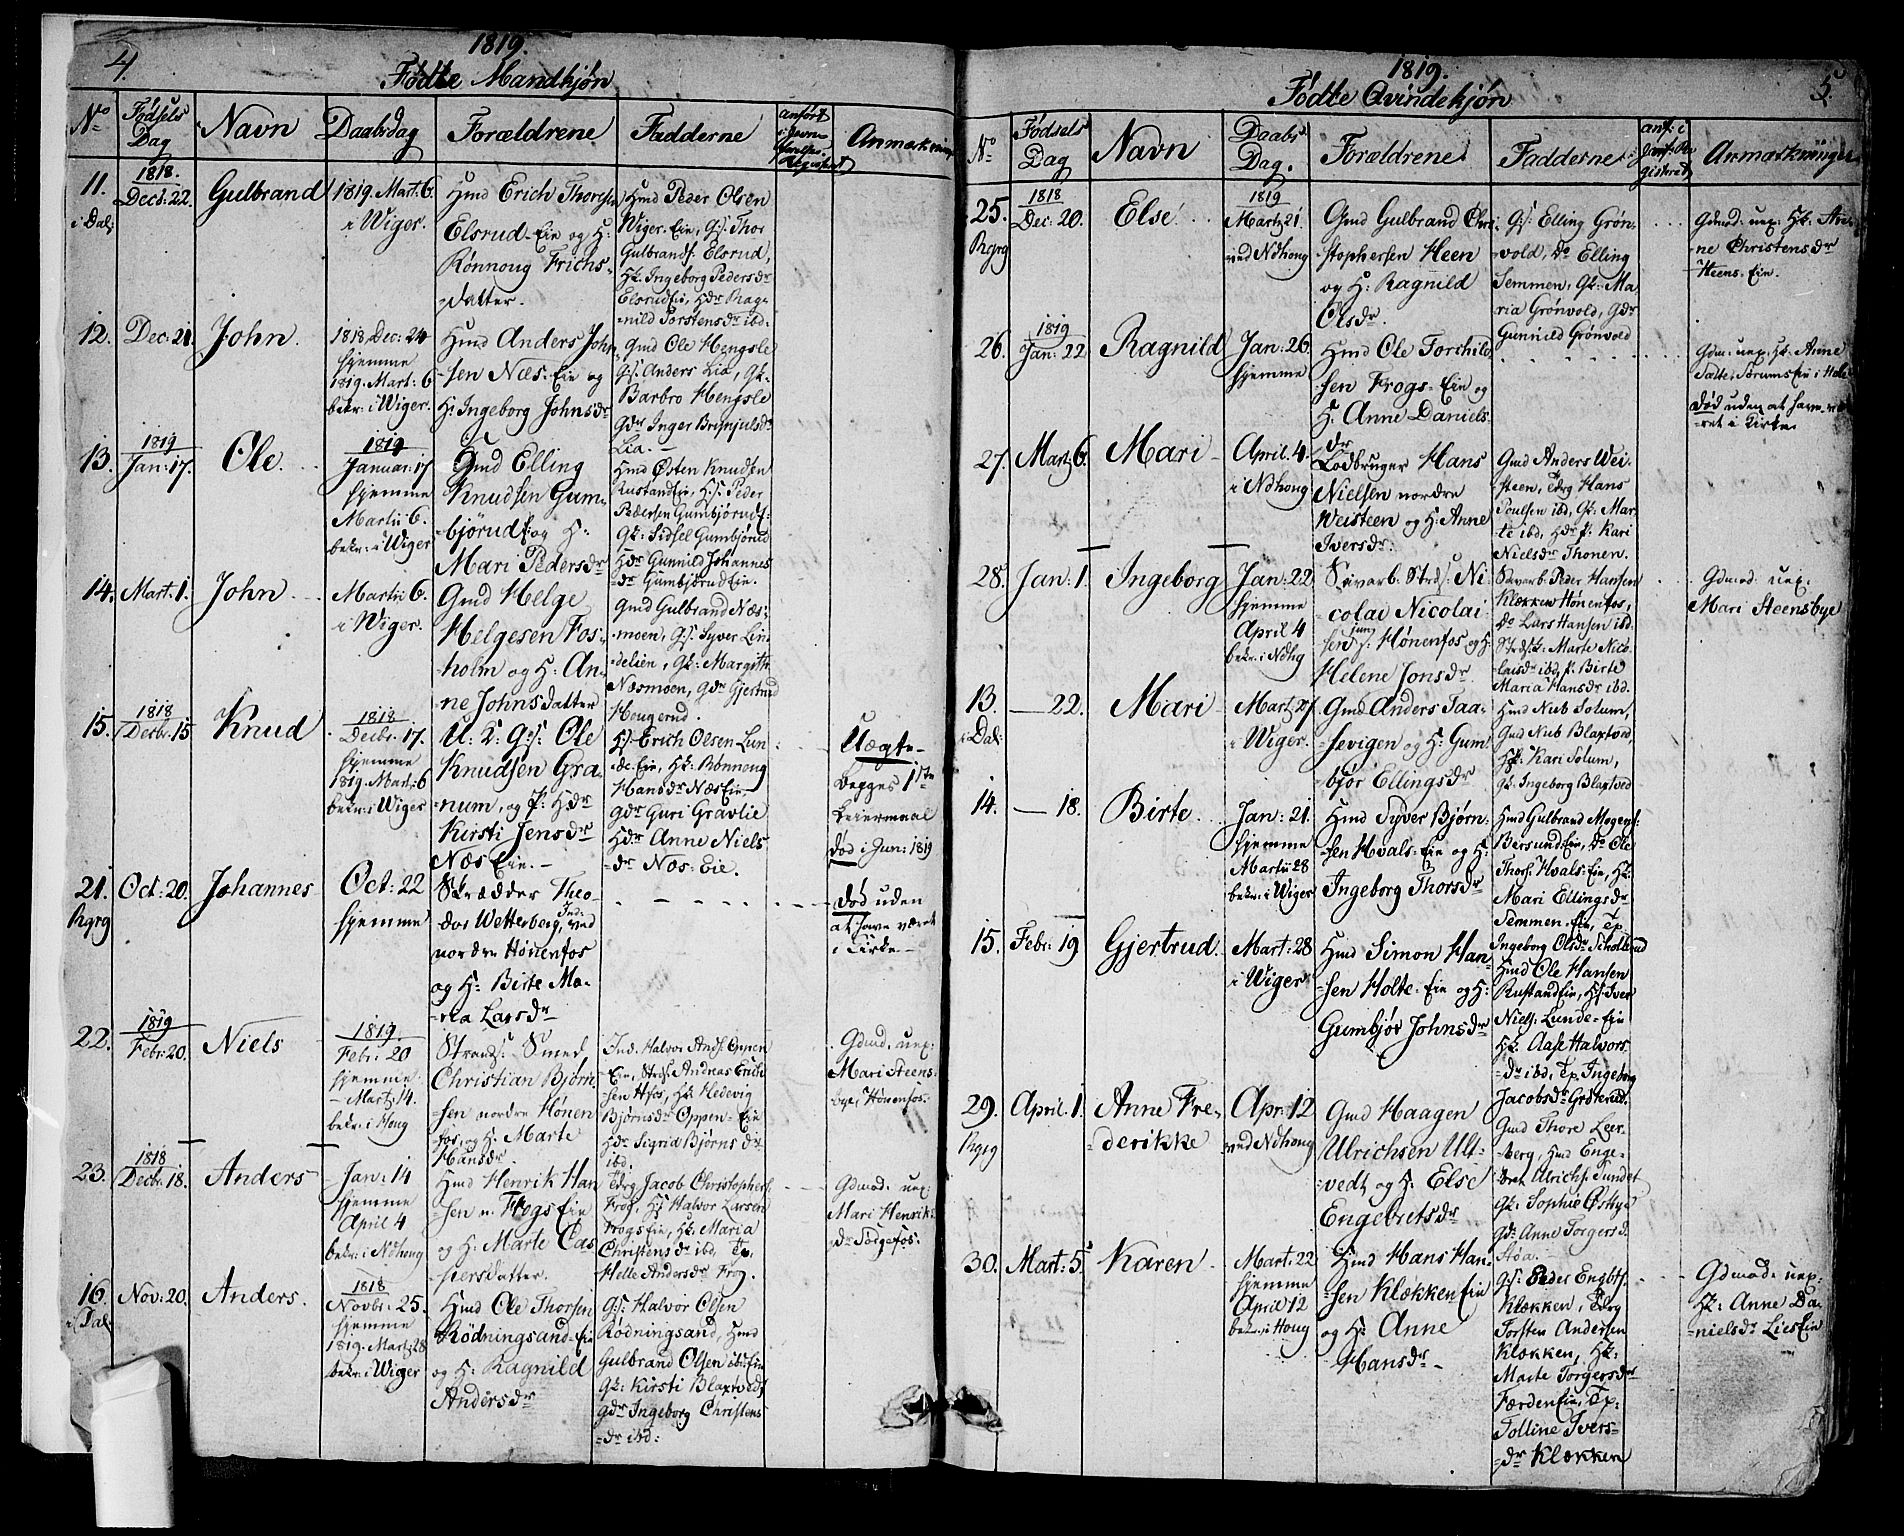 4.
1819.
Fødte Mandkjøn
No
Fødsels
Dag
Navn
Daabsdag
Forældrene
Fadderne
anført
Anmærkning
11.
i Dal:
1818.
Decb: 22.
Gulbrand
1819. Mart. 6.
i Wiger.
Hmd Erich Thorsen
Elsrud-Eie og H:
Rønnoug Erichs-
datter.
Hmd Peder Olsen
Wiger-Eie, G:s: Thor
Gulbrands: Elsrud,
Hk: Ingeborg Pedersdr
ElsrudEie, Hdr Rag-
nild Torstensdr ibd:
12.
Dec: 21.
John.
1818. Dec: 24
hjemme
1819. Mart: 6
bekr: i Wiger.
Hmd Anders John-
sen Næs-Eie og
H: Ingeborg Johnsdr
Gmd Ole Hengsle
G:s: Anders Lia, Gk:
Barbro Hengsle
Gdr Inger Brynjulsdr
Lia.
13.
1819
Jan: 17.
Ole.
1819
Januar: 17
hjemme
Martii 6.
bekr: i Wiger
Gmd Elling
Knudsen Gum-
bjørud og H:
Mari Pedersdr
Hmd Østen Knudsen
RustandEie, H:s: Peder
Pedersen Gumbjørud
Gk: Sidsel Gumbjørud
Hdr Gunnild Johannes
dr GumbjørudEie.
14.
Mart: 1.
John
Martii 6.
i Wiger.
Gmd Helge
Helgesen Fos-
holm og H: An-
ne Johnsdatter
Gmd Gulbrand Næs-
moen, G:s: Syver Lin-
delien, Gk: Margith
Næsmoen, Gdr Gjertrud
Hougerud.
15.
1818
Decbr. 15
Knud
1818
Decbr. 17.
hjemme
1819. Mart: 6
bekr: i Wiger
U: 2: G:s: Ole
Knudsen Gra-
num, og P: Hdr
Kirsti Jensdr
NæsEie.
H:s: Erich Olsen Lun-
de-Eie, Hk: Rønnoug
Hansdr NæsEie
Gdr Guri Gravlie
Hdr Anne Niels
dr Næs-Eie.
Uægte
Begges 1ste
Leiermaal
død i Jun: 1819
21.
Rgrg
Oct: 20.
Johannes
Oct: 22
hjemme
Skrædder Theo-
dor Wetterberg, Ind: ved
nordre Hønenfos
og H: Birte Ma-
ria Larsdr
død uden
at have været
i Kirke
22.
1819
Febr: 20.
Niels
1819.
Febr: 20
hjemme
Martz 14.
bekr: i Houg
Strands: Smed,
Christian Bjørn-
sen nordre Hønen
fos, og H: Marte
Hansdr
Ind. Halvor Ands: Oppen
Eie, Strds: Andreas Erich
sen Hfos, Hk: Hedevig
Bjørnsdr Oppen-Eie
Hdr Sigrid Bjørns dr
ibd.
Gdmod. uex:
Mari Steens-
bye, Hønenfos.
23.
1818
Decbr. 18.
Anders
Jan: 14
hjemme
April 4
bekr: i Ndhoug
Hmd Henrik Han
sen n. FrogsEie
og H: Marte Cas
persdatter.
Tdrg Jacob Christophers:
Frog, H:s: Halvor Larsen
FrogsEie, Hk: Maria
Christensdr ibd, Tp:
Helle Andersdr Frog.
Gdmod: uex:
Mari Henriks
dr Solgefos:
16.
i Dal
Nov: 20.
Anders.
1818
Novbr: 25.
hjemme
1819. Mart: 28
bekr: i Wiger
Hmd Ole Thorsen
Rødningsand-Eie
og H: Ragnild
Andersdr
G:s: Halvor Olsen
Rødningsand, Hmd
Gulbrand Olsen ibd:Eie
Gk: Kirsti Blaxtved,
Gdr Ingeborg Christens
dr ibd:
5.
1819.
Fødte Qvindekjøn
No
Fødsels
Dag
Navn
Daabs
Dag.
Forældrene
Fadderne
anf: i
gisteret
Anmærkninger
25.
Rgrg
1818
Dec: 20.
Else
1819
Martz 21
ved Ndhoug
Gmd Gulbrand Chri-
stophersen Heen
og H: Ragnild
Olsdr.
G:s: Elling Grøn-
vold, Do Elling
Semmen, Gk: Ma
ria Grønvold, Gdr
Gunnild Grønvold
Gdmod. uex: Hk: An-
ne Christensdr
Heens-Eie.
26.
1819
Jan: 22
Ragnild
Jan: 26
hjemme
Hmd Ole Torchild
sen Frogs-Eie og
H: Anne Daniels
dr
Gdm: uex: Hk: Anne
død uden at have væ
ret i Kirke.
27.
Mart: 6.
Mari
April 4.
i Ndhoug
Lodbruger Hans
Nielsen nordre
Weisteen og H: Anne
Iversdr.
Gmd Anders Wei-
steen, Tdrg Hans
Poulsen ibd, Gk: Mar-
te ibd, Hdr P. Kari
Nielsdr Thonen.
28.
Jan: 1.
Ingeborg
Jan: 22
hjemme
April 4
bekr: i Ndhg
Savarb: Strds: Ni
colai Nicolai
sen jun: Hønenfos og H:
Helene Jonsdr
Savarb: Peder Hansen
Klækken Hønenfos,
Do Lars Hansen ibd.
Strdsk: Marte Nico-
laisdr ibd, P. Birte
Maria Hansdr ibd.
Gdmod: uex:
Mari Steensbye
13.
i Dal:
— 22.
Mari
Martz 27
i Wiger.
Gmd Anders Taa-
sevigen og H: Gum-
bjør Ellingsdr
Hmd Nub Solum,
Gmd Nub Blaxtved,
Hk: Kari Solum,
Gk: Ingeborg Blaxtved
14.
— 18.
Birte
Jan: 21.
hjemme
Martii 28
bekr: i Wiger
Hmd Syver Bjørn-
sen Hvals-Eie og H:
Ingeborg Thorsdr
Hmd Gulbrand Mogens:
BersundEie, Do Ole
Thors: Hvals-Eie, Hk:
Mari Ellingsdr
Semmen-Eie, Tp
Ingeborg Olsdr
15.
Febr: 19
Gjertrud
Mart: 28
i Wiger
Hmd Simon Han-
sen Holte-Eie og H:
Gumbjør Johnsdr
Hmd Ole Hansen
RustandEie, H:s: Iver
Niels: Lunde-Eie
Hk: Aase Halvors
dr ibd, Tp. Ingeborg
Jacobsdr Grøterud.
29.
Rgrg
April 1.
Anne Fre-
derikke
Apr: 12
ved Ndhoug
Gmd Haagen
Ulrichsen Ult-
vedt og H: Else
Engebretsdr
Gmd Thore Leer-
berg, Hmd Enge-
bret Ulrichs: Sundet
Gk: Sophie Østbye
Gdr Anne Torgersd.
Støa.
30.
Mart: 5.
Karen
Mart: 22
hjemme
April 12
bekr: i Houg
Hmd Hans Han-
sen KlækkenEie
og H: Anne
Hansdr
G:s: Peder Engbts:
Klækken, Tdrg
Torsten Andersen
Klækken, Hk:
Marte Torgersdr
FærdenEie, Tp:
Tolline Ivers-
dr Klækken
Gdmod: uex:
Hk: Anne Da-
nielsdr LiesEie